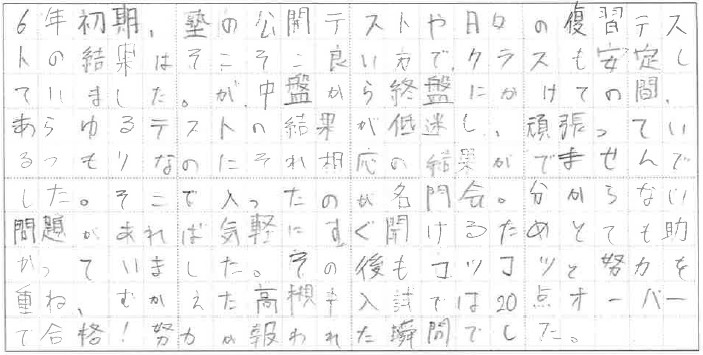 6年初期、塾の公開テストや日々の復習テス
トの結果はそこそこ良い方で、クラスも安定し
ていました。が、中盤から終盤にかけての間、
あらゆるテストの結果が低迷し、頑張ってい
るつもりなのにそれ相応の結果がでませんで
した。そこで入ったのが名門会。分からない
問題があれば気軽にすぐ聞けるためとても助
かっていました。その後もコツコツと努力を
重ね、むかえた高槻中入試では20点オーバー
で合格!努力が報われた瞬間でした。